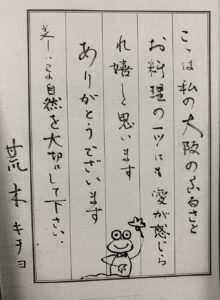 ここは私の大阪のふるさと
お料理の一ツにも愛が感じら
れ嬉しく思います
ありがとうございます
美しい自然を大切にして下さい。
荒木キチヨ